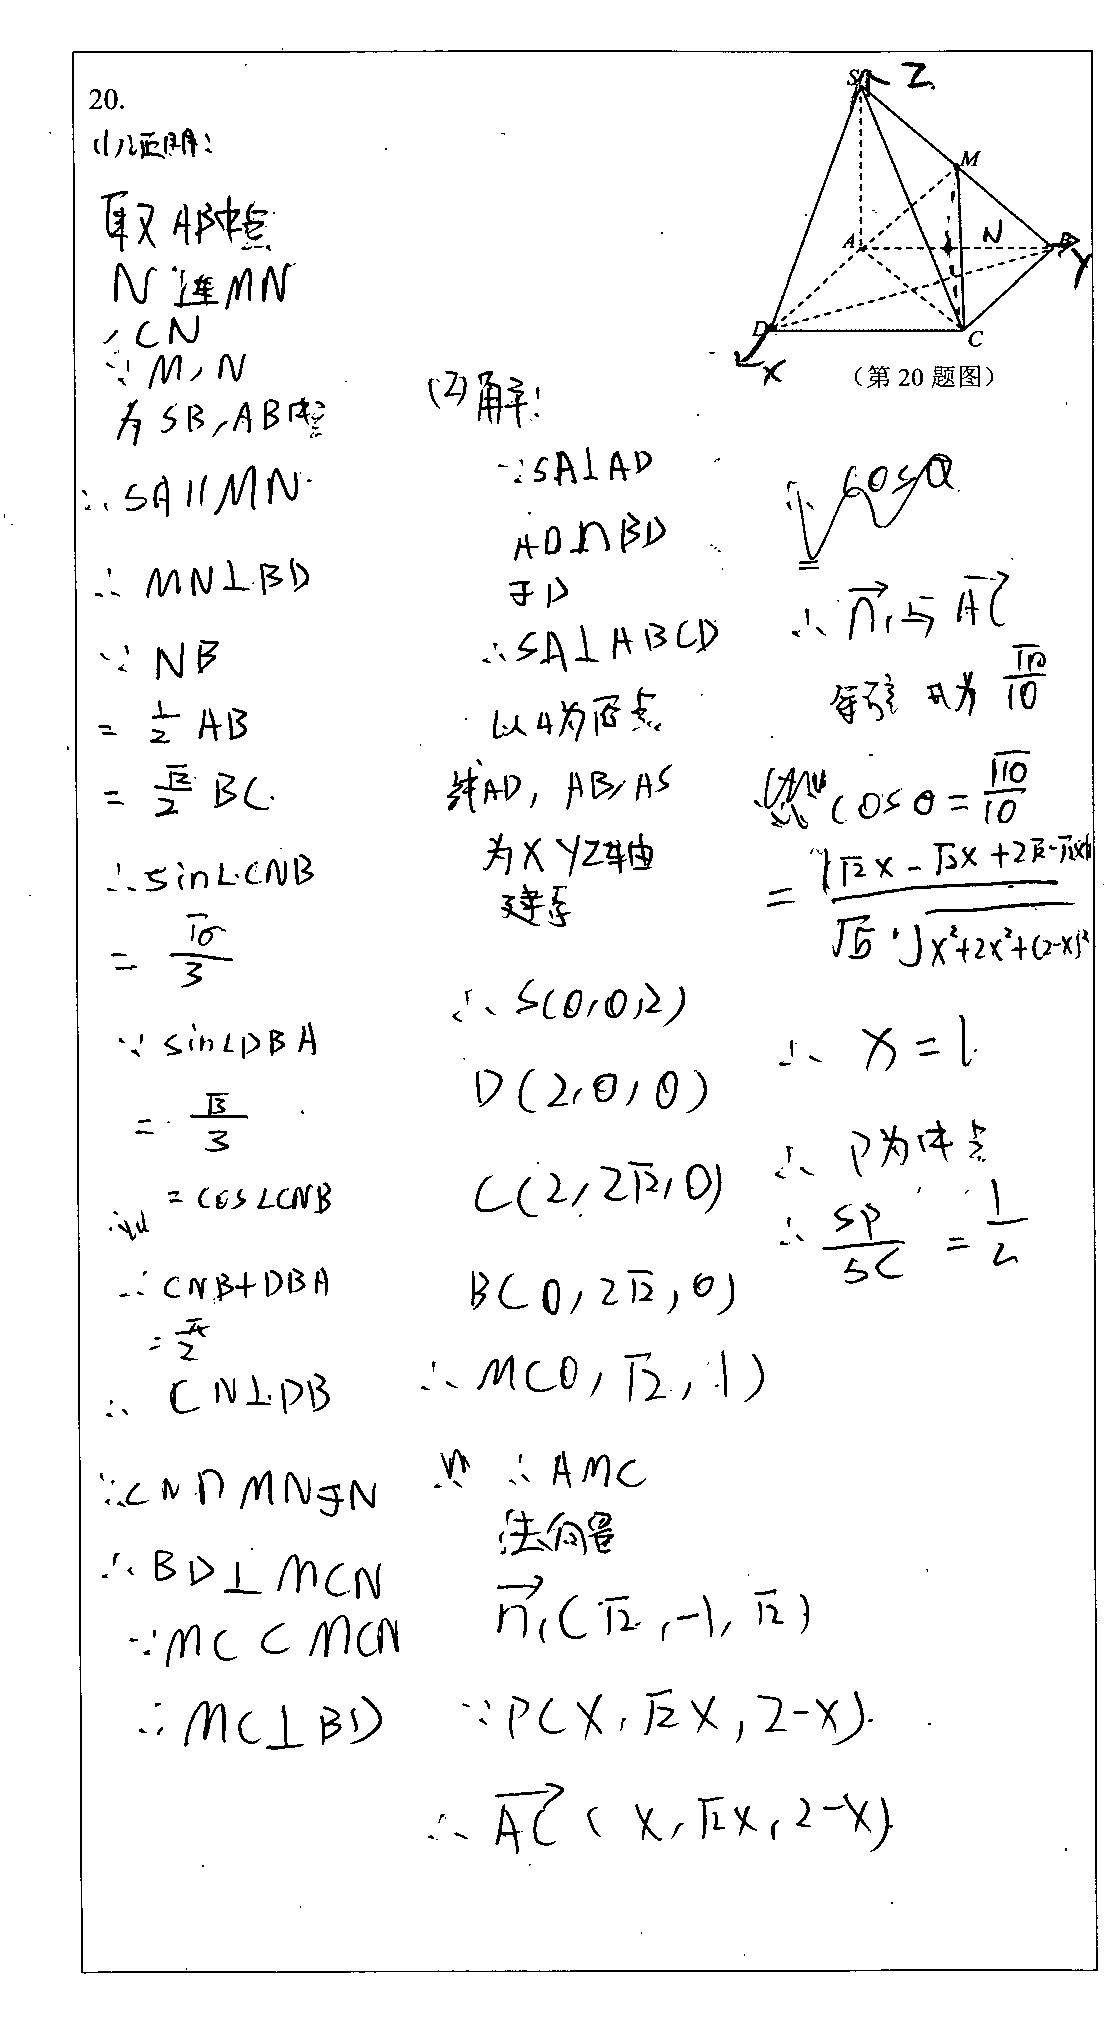 20.
(1)证明:
取AB中点
N 连MN
,CN
∵M,N
为SB,AB中点
∴SA∥MN
∴MN⊥BD
∵NB
=\frac{1}{2}AB
=\frac{\sqrt{2}}{2}BC
∴sin∠CNB
=\frac{\sqrt{6}}{3}
∵sin∠DBA
=\frac{\sqrt{3}}{3}
=cos∠CNB
∴CNB+DBA
=\frac{π}{2}
∴CN⊥DB
∵CN∩MN于N
∴BD⊥MCN
∵MC⊂MCN
∴MC⊥BD
(2)解:
∵SA⊥AD
AD∩BD
于D
∴SA⊥ABCD
以A为原点
AD,AB,AS
为XYZ轴
建系
∴S(0,0,2)
D(2,0,0)
C(2,2\sqrt{2},0)
B(0,2\sqrt{2},0)
∴M(0,\sqrt{2},1)
∴AMC
法向量
\vec{n_1}(\sqrt{2},-1,\sqrt{2})
∵P(X,\sqrt{2}X,2-X)
∴\vec{AC}(X,\sqrt{2}X,2-X)
S
Z
M
A
N
B
Y
D
C
X
(第20题图)
∴cosθ
∴\vec{n_1}与\vec{AC}
为\frac{\sqrt{10}}{10}
cosθ=\frac{\sqrt{10}}{10}
∴X=1
∴P为中点
∴\frac{SP}{SC}=\frac{1}{2}